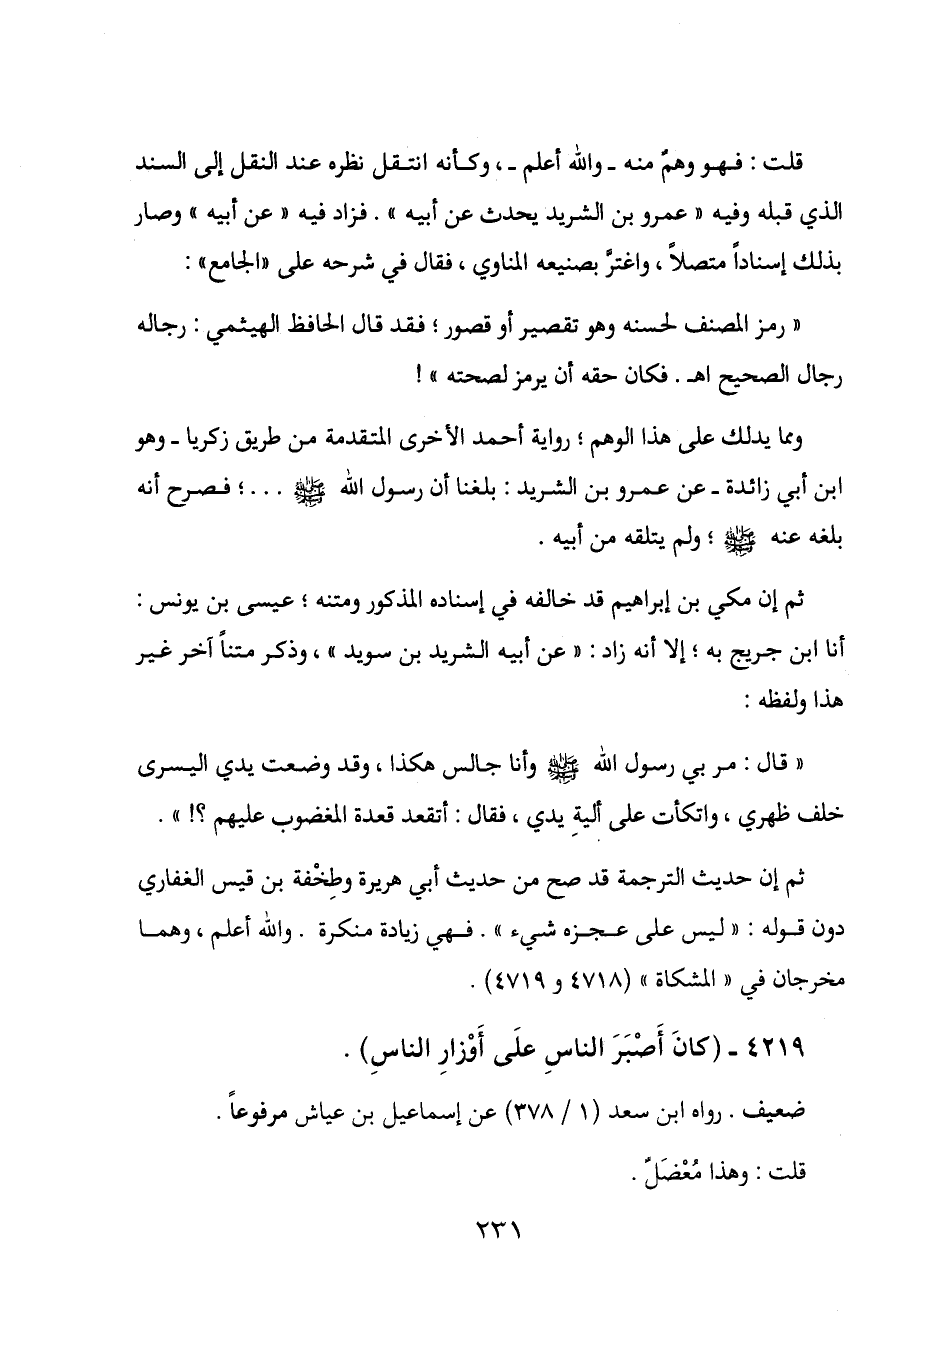 قلت : فـهـو وهمٌ منه ـ والله أعلم ـ ، وكـأنه انتـقـل نظره عند النقل إلى السند
الذي قبله وفيه « عمرو بن الشريد يحدث عن أبيه » . فزاد فيه « عن أبيه » وصار
بذلك إسناداً متصلاً ، واغترَّ بصنيعه المناوي ، فقال في شرحه على «الجامع» :
« رمز المصنف لحسنه وهو تقصير أو قصور ؛ فقد قال الحافظ الهيثمي : رجاله
رجال الصحيح اهـ . فكان حقه أن يرمز لصحته » !
ومما يدلك على هذا الوهم ؛ رواية أحمد الأخرى المتقدمة من طريق زكريا ـ وهو
ابن أبي زائدة ـ عن عمرو بن الشريد : بلغنا أن رسول الله ﷺ . . . ؛ فصرح أنه
بلغه عنه ﷺ ؛ ولم يتلقه من أبيه .
ثم إن مكي بن إبراهيم قد خالفه في إسناده المذكور ومتنه ؛ عيسى بن يونس :
أنا ابن جريج به ؛ إلا أنه زاد : « عن أبيه الشريد بن سويد » ، وذكر متناً آخر غير
هذا ولفظه :
« قال : مر بي رسول الله ﷺ وأنا جالس هكذا ، وقد وضعت يدي اليسرى
خلف ظهري ، واتكأت على أليةِ يدي ، فقال : أتقعد قعدة المغضوب عليهم ؟! » .
ثم إن حديث الترجمة قد صح من حديث أبي هريرة وطِخْفة بن قيس الغفاري
دون قوله : « ليس على عجزه شيء » . فهي زيادة منكرة . والله أعلم ، وهما
مخرجان في « المشكاة » (٤٧١٨ و ٤٧١٩) .
٤٢١٩ ـ (كانَ أَصْبَرَ الناسِ علَى أَوْزارِ الناسِ) .
ضعيف . رواه ابن سعد (١ / ٣٧٨) عن إسماعيل بن عياش مرفوعاً .
قلت : وهذا مُعْضَلٌ .
٢٣١